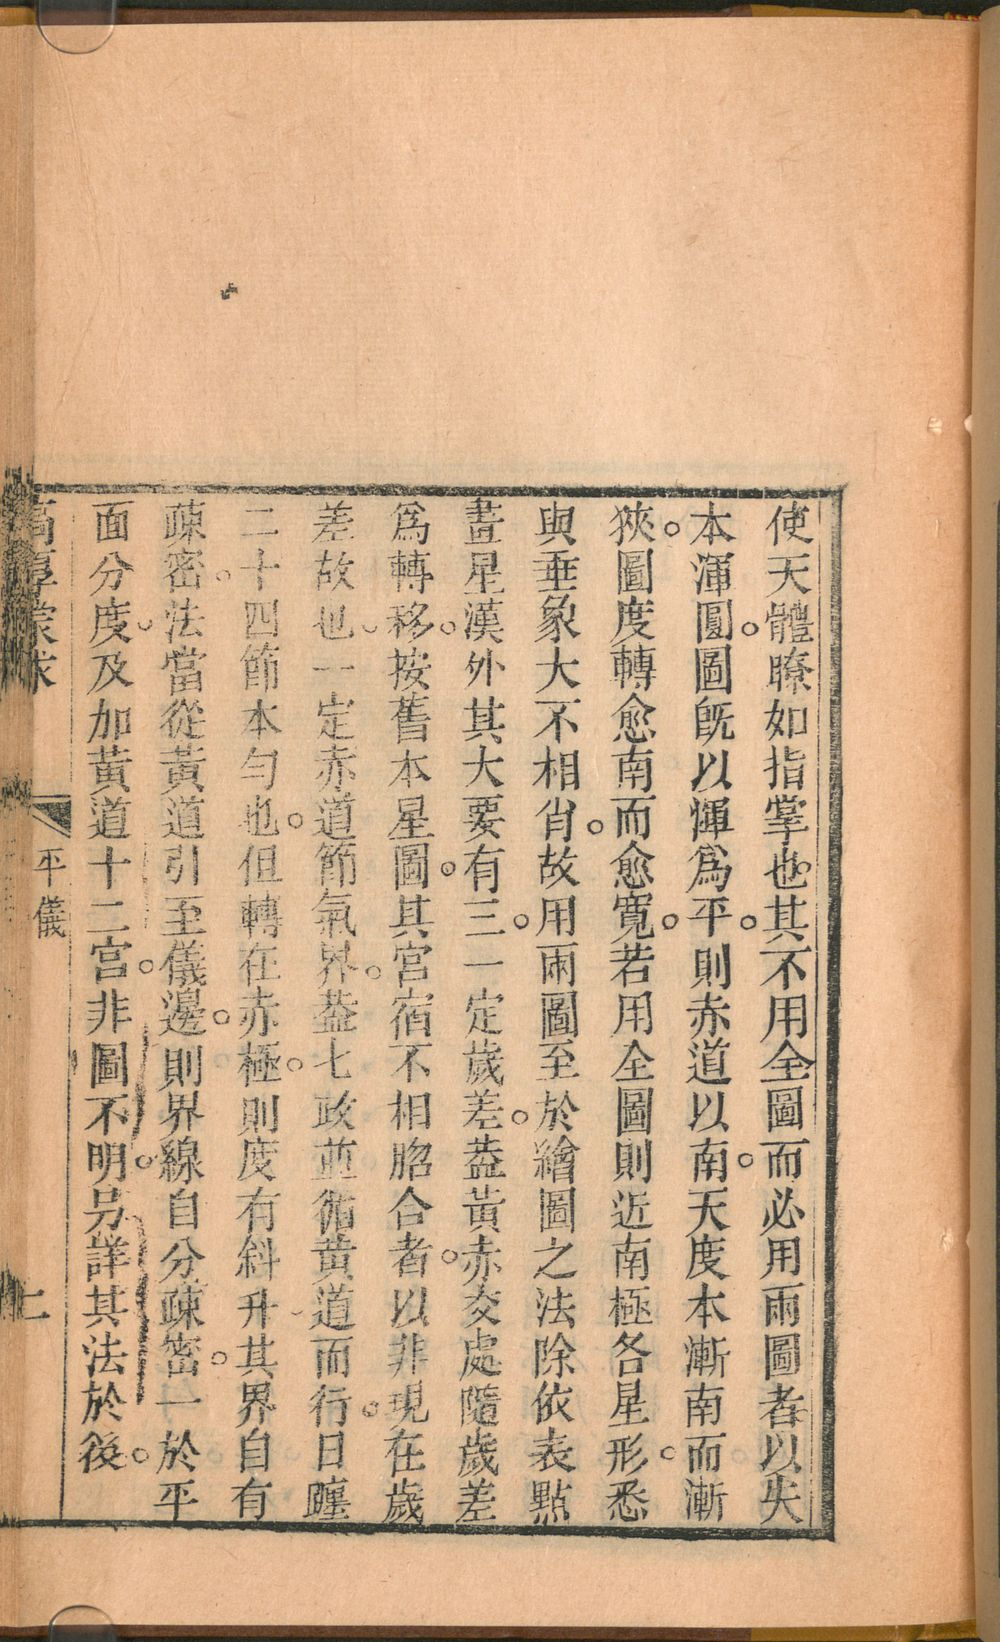 使天體瞭如指掌也其不用全圖而必用兩圖者以失
本渾圓圖既以渾爲平則赤道以南天度本漸南而漸
狹圖度轉愈南而愈寬若用全圖則近南極各星形悉
與垂象大不相肖故用兩圖至於繪圖之法除依表點
畫星漢外其大要有三一定歲差葢黃赤交處隨歲差
爲轉移按舊本星圖其宮宿不相脗合者以非現在歲
差故也一定赤道節氣界葢七政並循黄道而行日躔
二十四節本勻也但轉在赤極則度有斜升其界自有
疎密法當從黃道引至儀邊則界線自分疎密一於平
面分度及加黃道十二宮非圖不明另詳其法於後
高厚蒙求
平儀
七